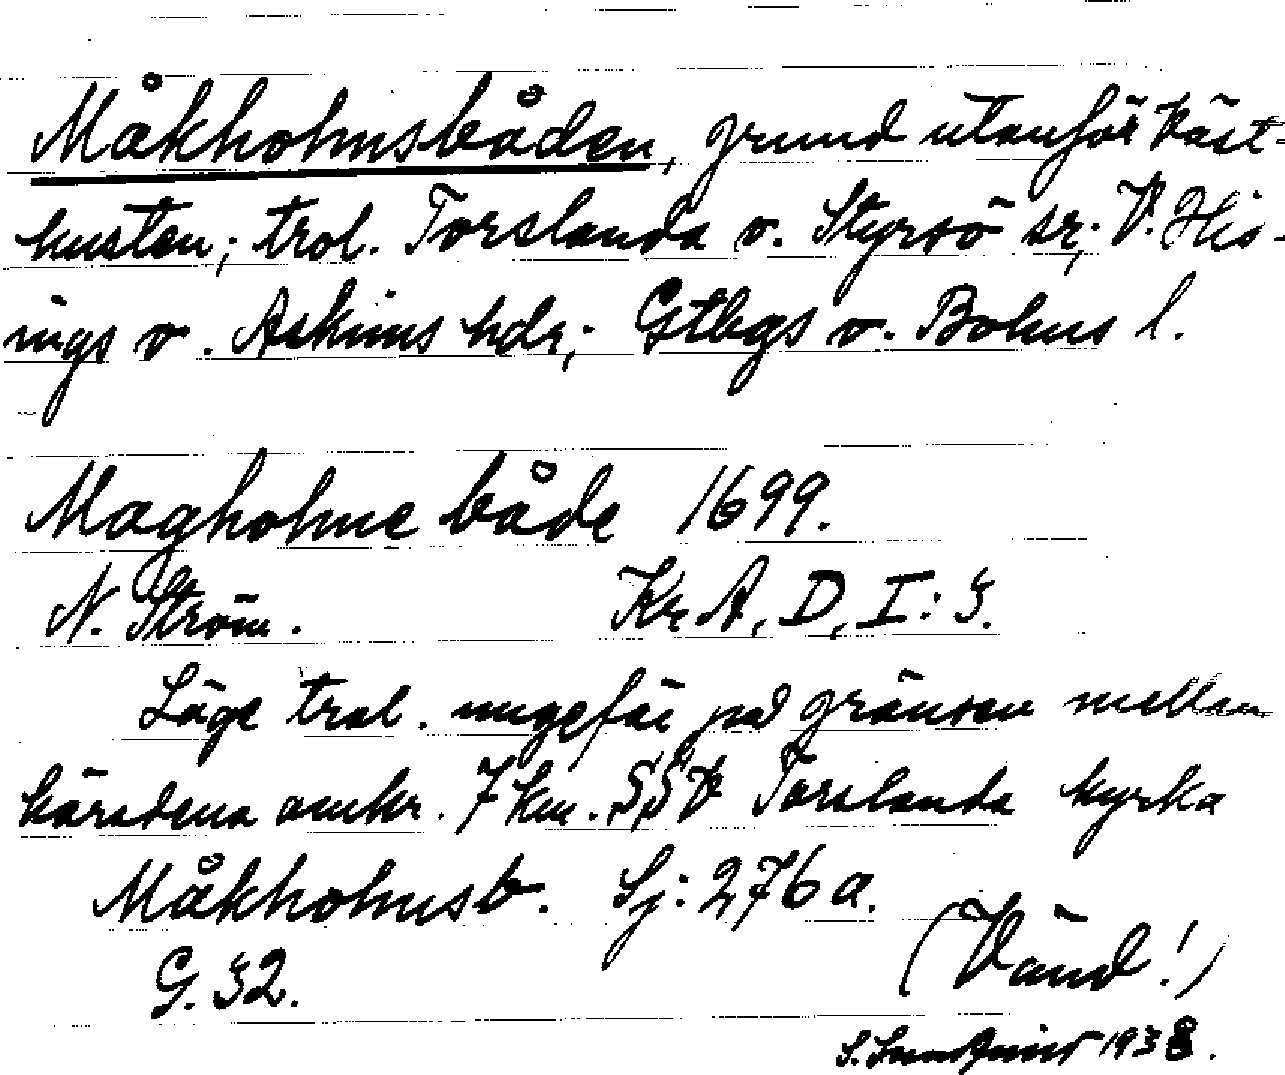 Måkholmsbåden, grund utanför Väst-
kusten; trol. Torslanda o. Styrsö sr; V. His-
ings o. Askims hdr; Gtbgs o. Bohus l.
Magholme både 1699.
N. Ström. Kr A, D, I: 3.
Läge trol. ungefär på gränsen mellan
häradena omkr. 7 km. SSV Torslanda kyrka
Måkholmsb. Sj: 276 a.
G. 32. (Vänd!)
S. 1938.